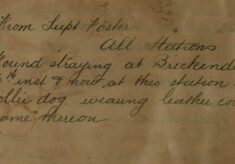 From Supt Foster
All Stations
ound straying at Breckende
th inst & now at this station
ollie dog, wearing leather co
ame thereon